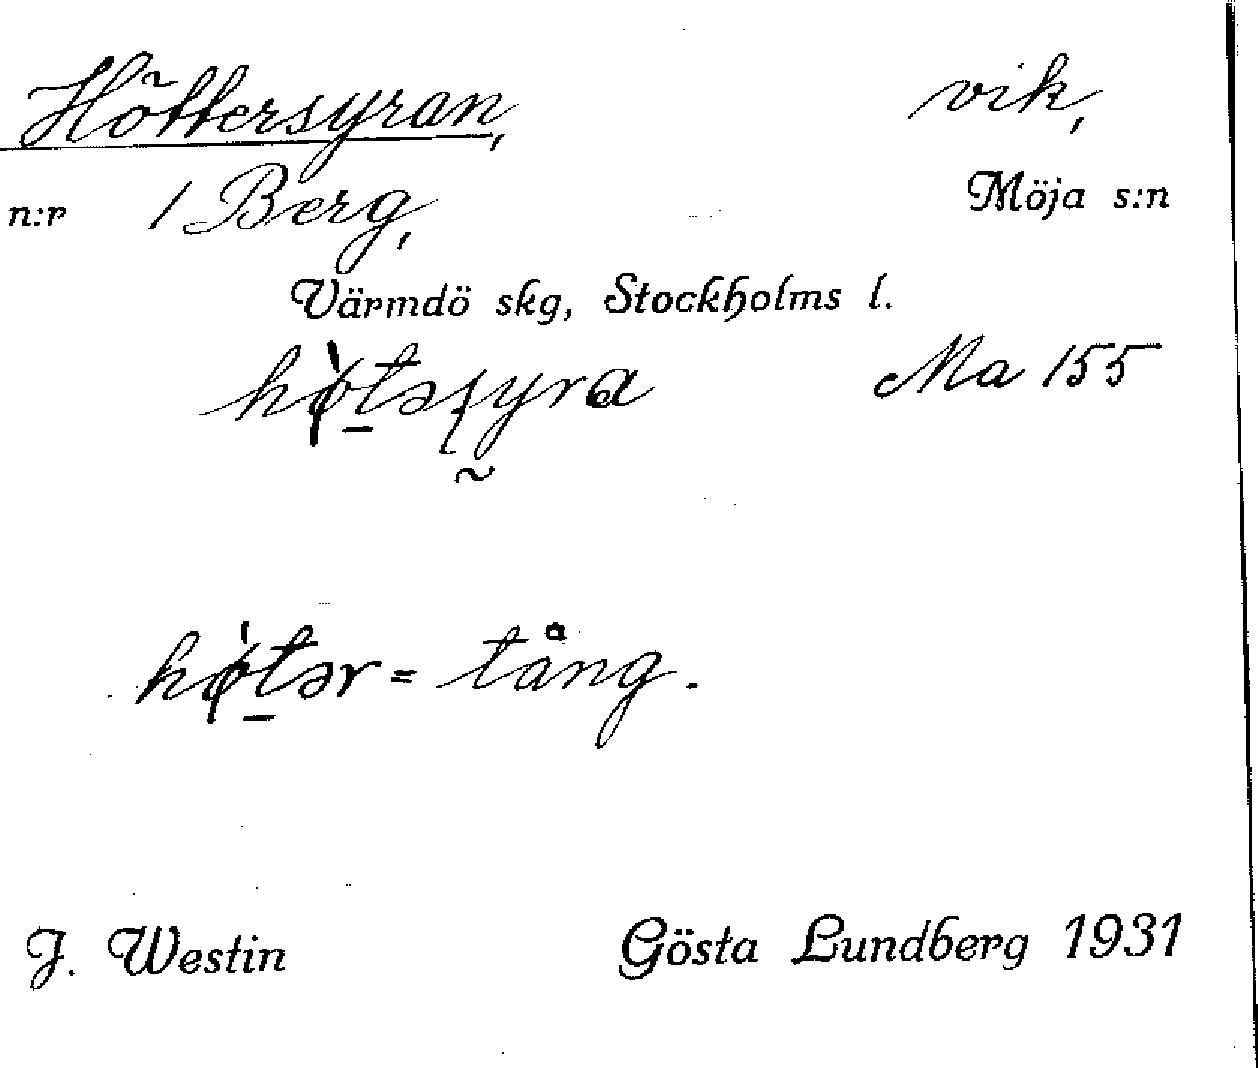 Höttersyran, vik,
n:r 1 Berg, Möja s:n
Värmdö skg, Stockholms l.
Ma 155
= tång.
J. Westin Gösta Lundberg 1931